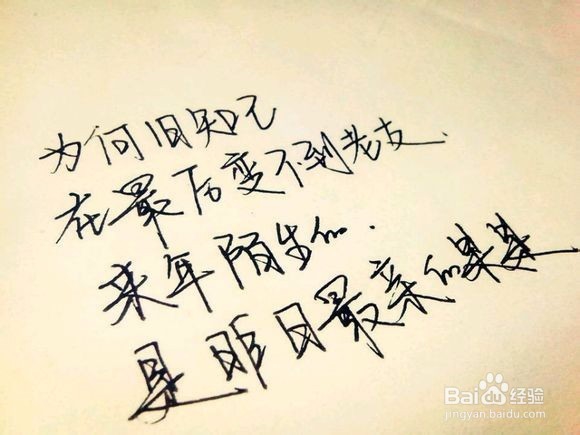 为何旧知己
在最后变不到老友.
来年陌生的.
是昨日最亲的某某
Bai du 经验
jingyan.baidu.com